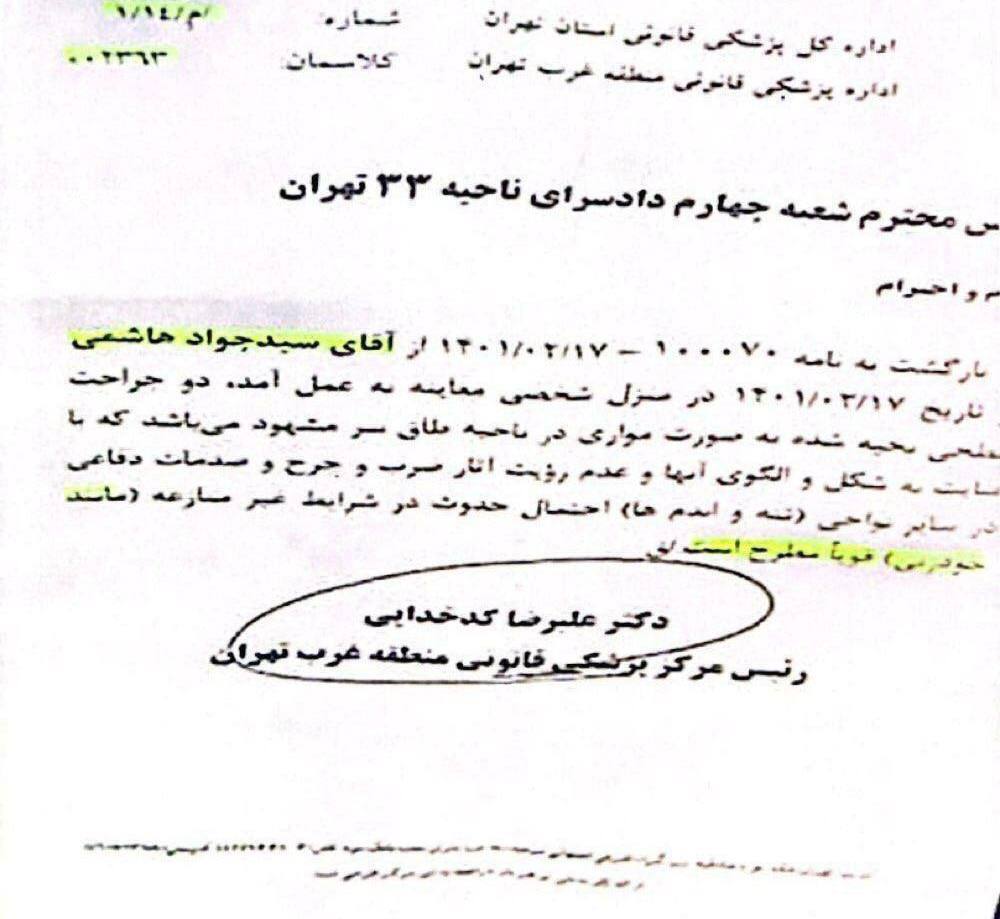 اداره کل پزشکی قانونی استان تهران
اداره پزشکی قانونی منطقه غرب تهران
شماره: /م/۹/۱۴
کلاسمان: ۰۰۲۳۶۳
س محترم شعبه چهارم دادسرای ناحیه ۳۳ تهران
م و احترام
بازگشت به نامه ۱۰۰۰۷۰ – ۱۴۰۱/۰۲/۱۷ از آقای سیدجواد هاشمی
تاریخ ۱۴۰۱/۰۲/۱۷ در منزل شخصی معاینه به عمل آمد. دو جراحت
سطحی بخیه شده به صورت موازی در ناحیه طاق سر مشهود می‌باشد که با
عنایت به شکل و الگوی آنها و عدم رؤیت آثار ضرب و جرح و صدمات دفاعی
در سایر نواحی (تنه و اندم ها) احتمال حدوث در شرایط غیر منازعه (مانند
خودزنی) قویاً مطرح است
دکتر علیرضا کدخدایی
رئیس مرکز پزشکی قانونی منطقه غرب تهران